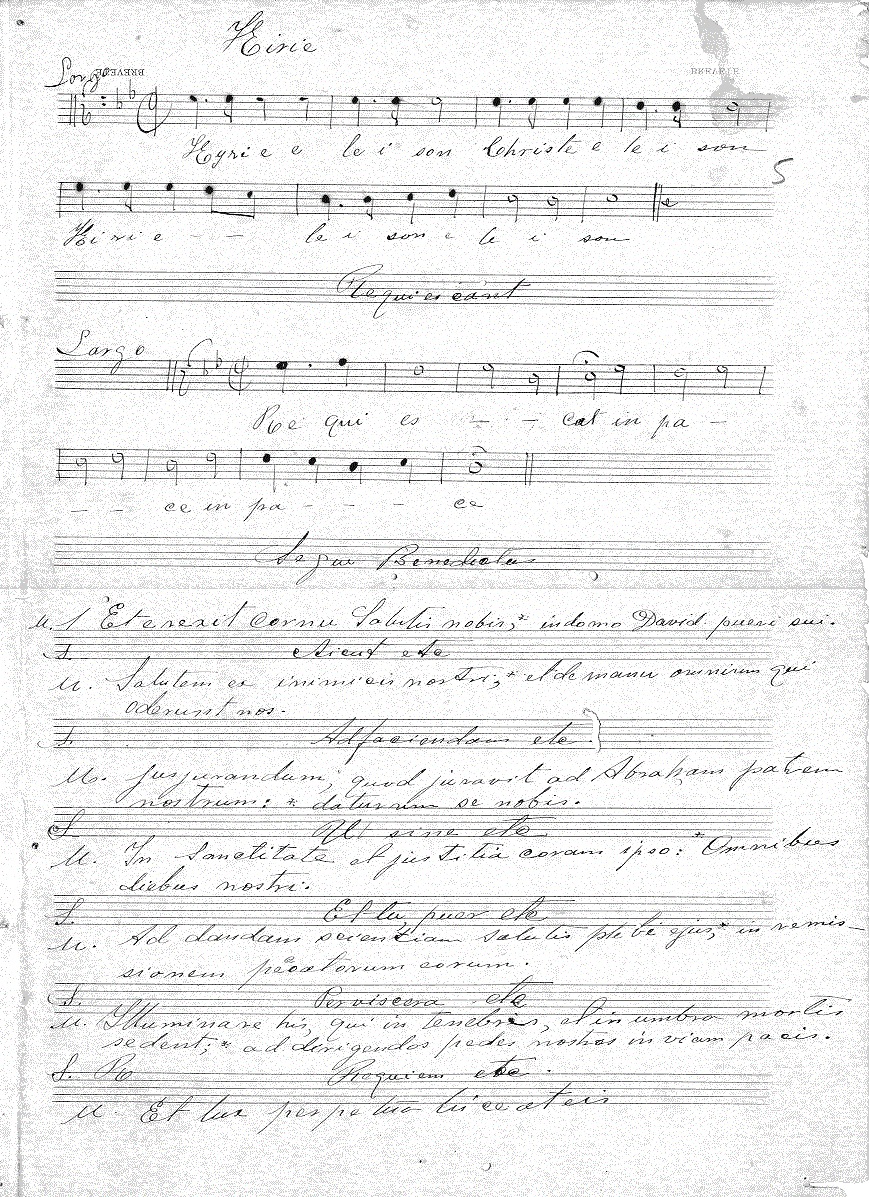 Kirie
Largo
BREVETÉ
Kyri e e le i son Christe e le i son
5
Kiri e - - le i son e le i son
Requiescant
Largo
Re qui es - - - cat in pa -
- - ce in pa - - - - ce
Segue Benedictus
U. 1 Et erexit cornu Salutis nobis,* in domo David pueri sui.
S. Sicut etc
U. Salutem ex inimicis nostri,* et de manu omnium qui
oderunt nos.
S. Ad faciendam etc
U. Jusjurandum, quod juravit ad Abraham patrem
nostrum: * daturum se nobis.
S. Ut sine etc
U. In Sanctitate et justitia coram ipso: * Omnibus
diebus nostri.
S. Et tu, puer etc
U. Ad dandam scientiam salutis plebi ejus,* in remis-
sionem pecatorum eorum.
S. Per viscera etc
U. Illuminare his, qui in tenebris, et in umbra mortis
sedent;* ad dirigendos pedes nostros in viam pacis.
S. Re Requiem etc.
U. Et lux perpetua luceat eis